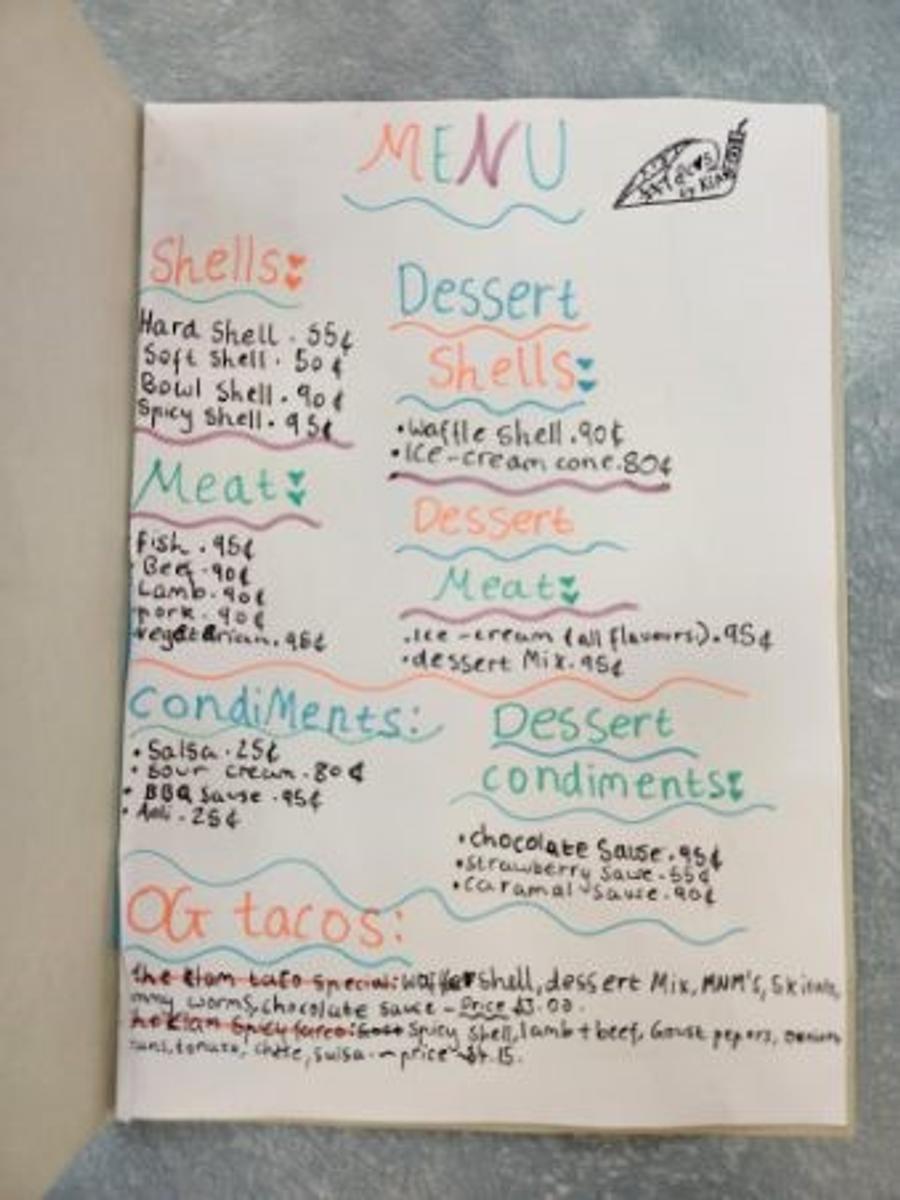 MENU
Tacos
by Kiah
Shells:
Hard Shell . 55¢
Soft Shell . 50¢
Bowl Shell . 90¢
Spicy Shell . 95¢
Meat:
Fish . 95¢
Beef . 90¢
Lamb . 90¢
pork . 90¢
vegetarian . 95¢
condiMents:
• Salsa . 25¢
• Sour cream . 80¢
• BBQ Sause . 95¢
• Aoli . 25¢
Dessert
Shells:
• waffle Shell . 90¢
• Ice-cream cone . 80¢
Dessert
Meat:
• Ice-cream (all flavours) . 95¢
• dessert Mix . 95¢
Dessert
condiments:
• chocolate Sause . 95¢
• Strawberry Sause . 55¢
• caramal Sause . 90¢
OG tacos:
the taco special: Shell, dessert Mix, MNM's,
worms, chocolate sauce - Price $3.00.
Spicy Spicy Shell, lamb + beef,
tomato, salsa - price $4.15.